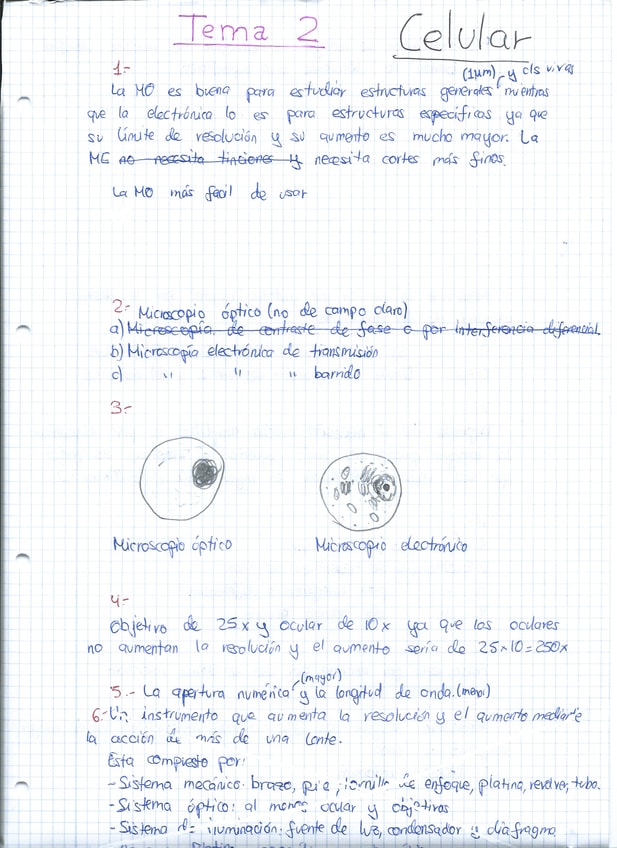 Tema 2 Celular
1.-
(1μm) y cls vivas
La MO es buena para estudiar estructuras generales mientras
que la electrónica lo es para estructuras específicas ya que
su límite de resolución y su aumento es mucho mayor. La
ME no necesita tinciones y necesita cortes más finos.
La MO más facil de usar
2.- Microscopio óptico (no de campo claro)
a) Microscopía de contraste de fase o por interferencia diferencial.
b) Microscopía electrónica de transmisión
c) " " " barrido
3.-
Microscopio óptico Microscopio electrónico
4.-
Objetivo de 25x y ocular de 10x ya que los oculares
no aumentan la resolución y el aumento sería de 25×10=250x
(mayor)
5.- La apertura numérica y la longitud de onda. (menor)
6.- Un instrumento que aumenta la resolución y el aumento mediante
la acción de más de una lente.
Esta compuesto por:
- Sistema mecánico: brazo, pie, tornillo de enfoque, platina, revolver, tubo.
- Sistema óptico: al menos ocular y objetivos
- Sistema de iluminación: fuente de luz, condensador y diafragma
Platina